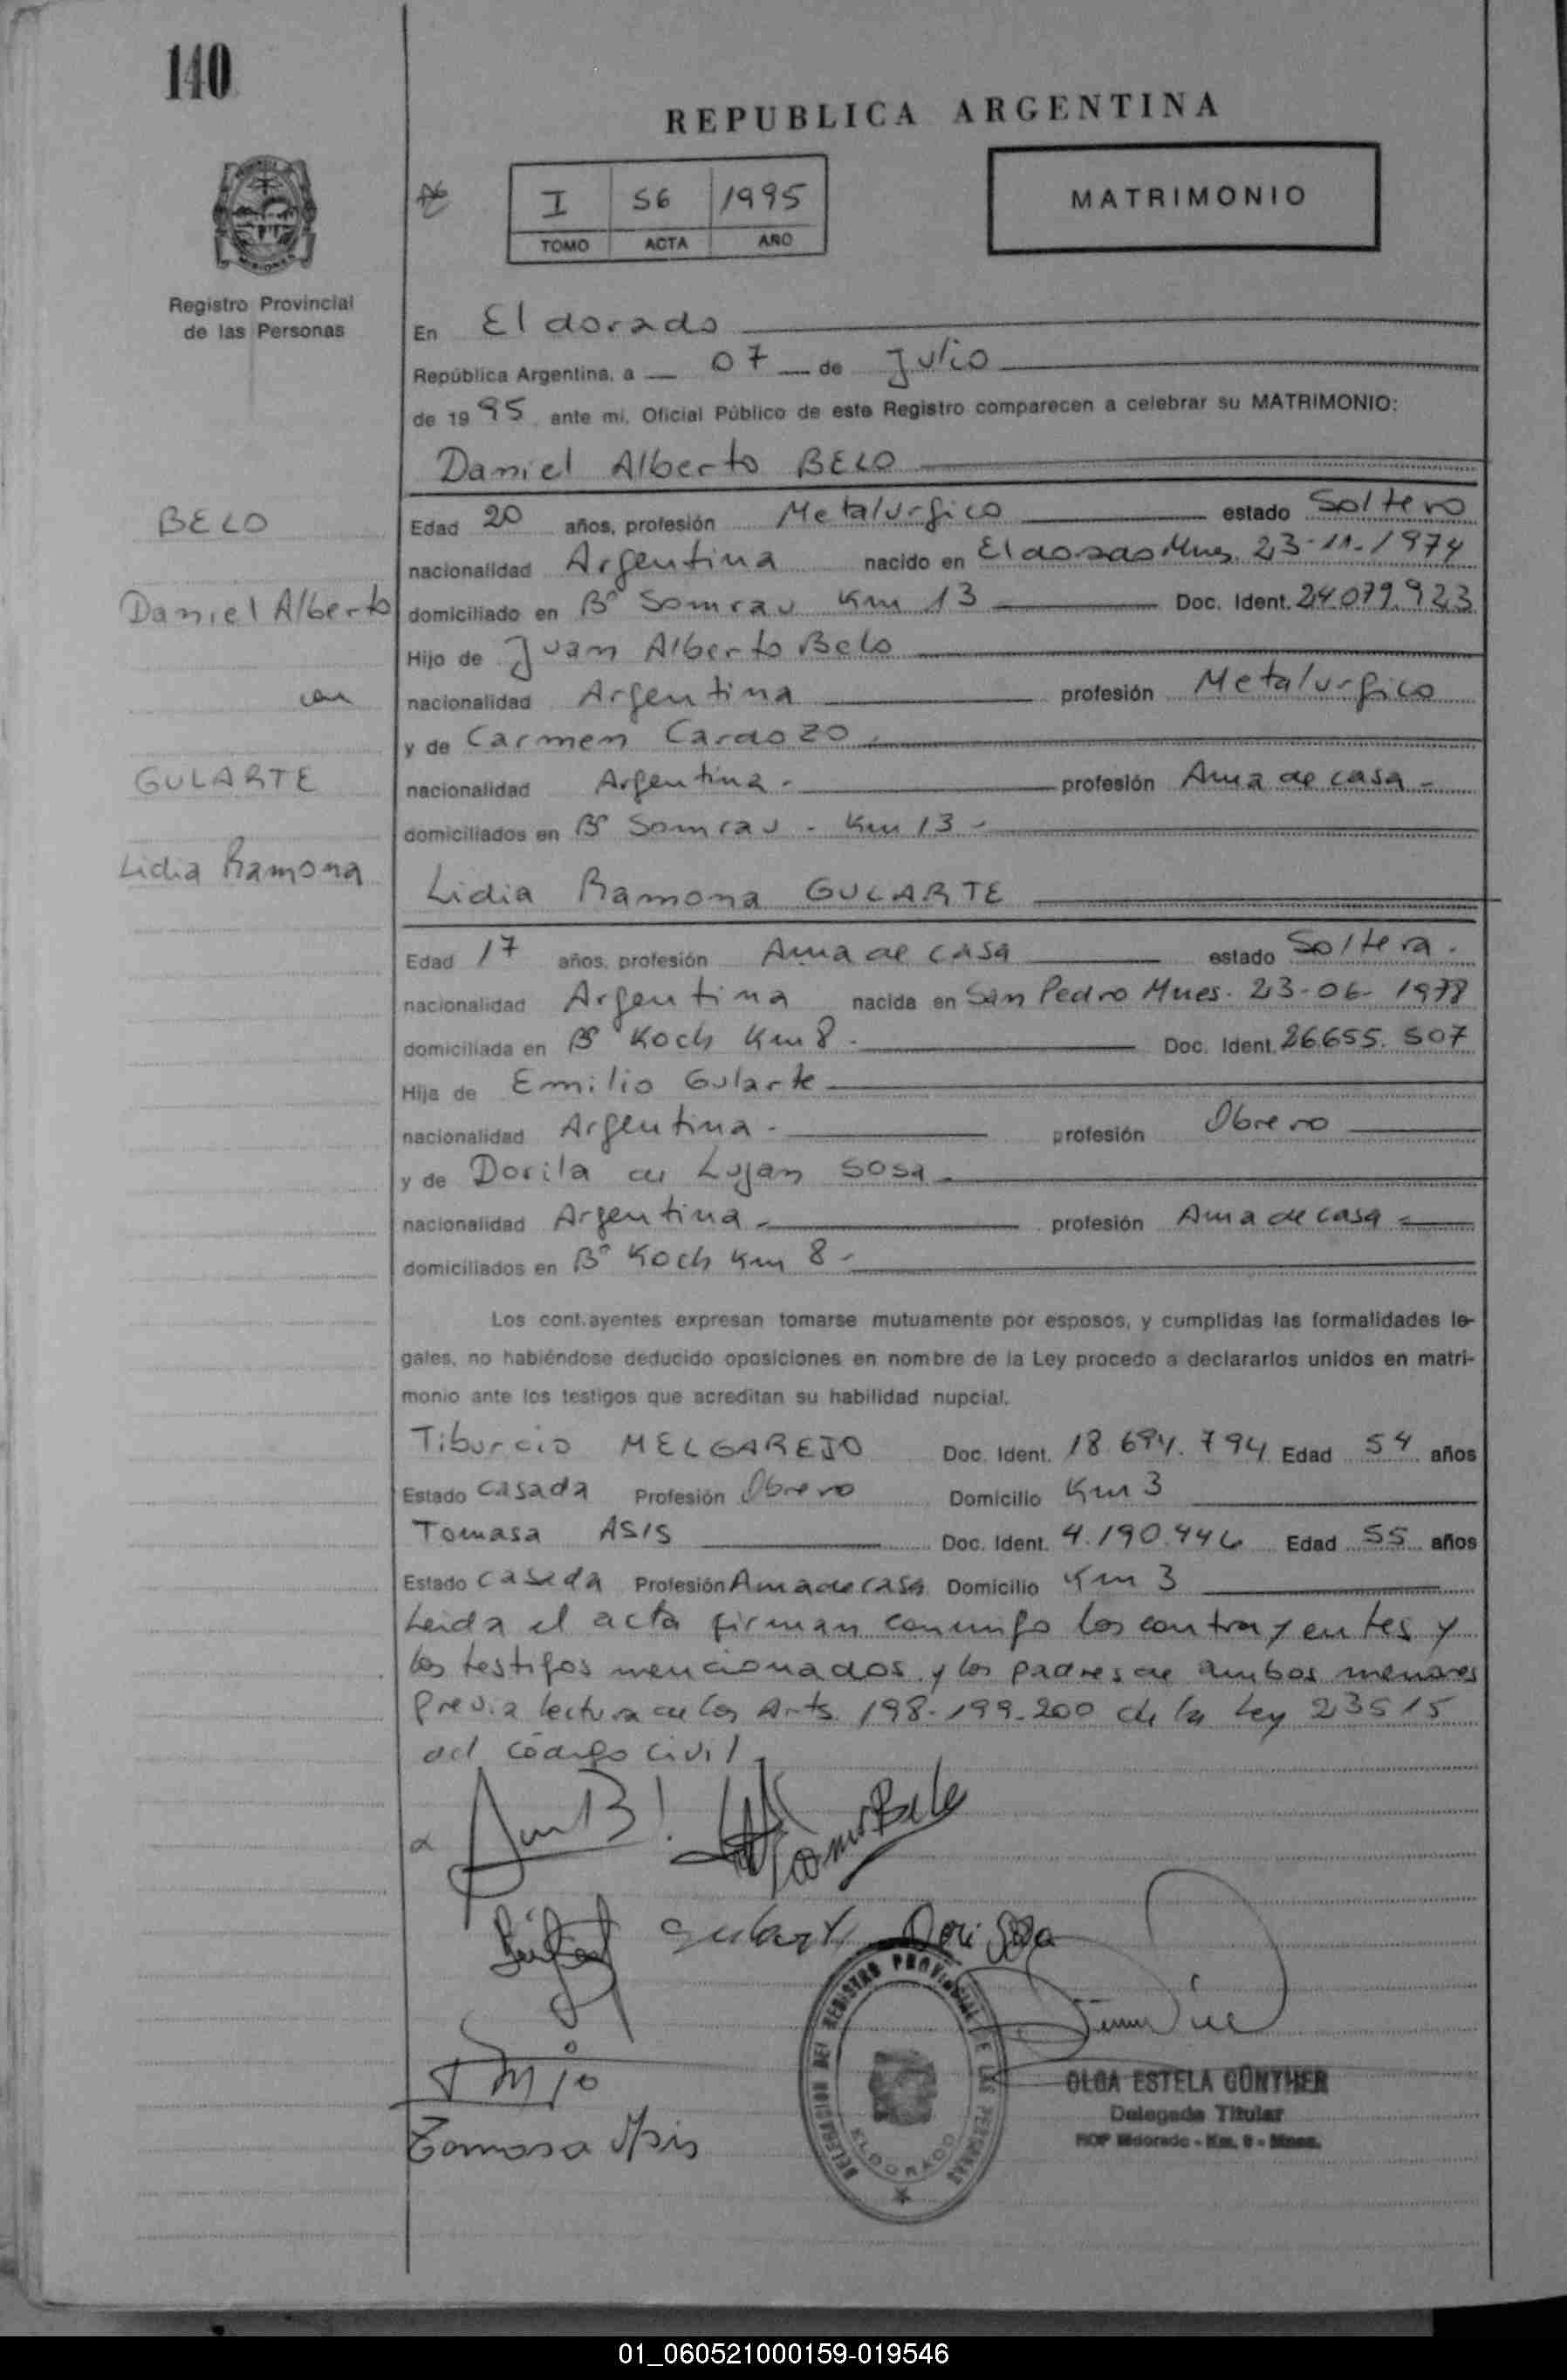 140
REPUBLICA ARGENTINA
I 56 1995
TOMO ACTA AÑO
MATRIMONIO
MISIONES
Registro Provincial
de las Personas
En Eldorado
República Argentina, a 07 de Julio
de 1995 ante mi, Oficial Público de este Registro comparecen a celebrar su MATRIMONIO:
Daniel Alberto BELO
BELO
Daniel Alberto
con
GULARTE
Lidia Ramona
Edad 20 años, profesión Metalurgico estado Soltero
nacionalidad Argentina nacido en Eldorado Mnes. 23-11-1974
domiciliado en Bº Somrau Km 13 Doc. Ident. 24.079.923
Hijo de Juan Alberto Belo
nacionalidad Argentina profesión Metalurgico
y de Carmen Cardozo
nacionalidad Argentina - profesión Ama de casa -
domiciliados en Bº Somrau - Km 13 -
Lidia Ramona GULARTE
Edad 17 años, profesión Ama de casa estado Soltera.
nacionalidad Argentina nacida en San Pedro Mnes. 23-06-1978
domiciliada en Bº Koch Km 8. Doc. Ident. 26.655.507
Hija de Emilio Gularte
nacionalidad Argentina - profesión Obrero
y de Dorila de Lujan Sosa
nacionalidad Argentina - profesión Ama de casa -
domiciliados en Bº Koch Km 8 -
Los contrayentes expresan tomarse mutuamente por esposos, y cumplidas las formalidades le-
gales, no habiéndose deducido oposiciones en nombre de la Ley procedo a declararlos unidos en matri-
monio ante los testigos que acreditan su habilidad nupcial.
Tiburcio MELGAREJO Doc. Ident. 18.694.794 Edad 54 años
Estado casada Profesión Obrero Domicilio Km 3
Tomasa ASIS Doc. Ident. 4.190.446 Edad 55 años
Estado casada Profesión Ama de casa Domicilio Km 3
Leida el acta firman conmigo los contrayentes y
los testigos mencionados y los padres de ambos menores
previa lectura de los Arts. 198-199-200 de la Ley 23515
del código civil.
Gularte Dori Sosa
Tomasa Asis
DELEGACION DEL REGISTRO PROVINCIAL DE LAS PERSONAS
ELDORADO
OLGA ESTELA GÜNTHER
Delegada Titular
RDP Eldorado - Km. 9 - Mnes.
01_060521000159-019546